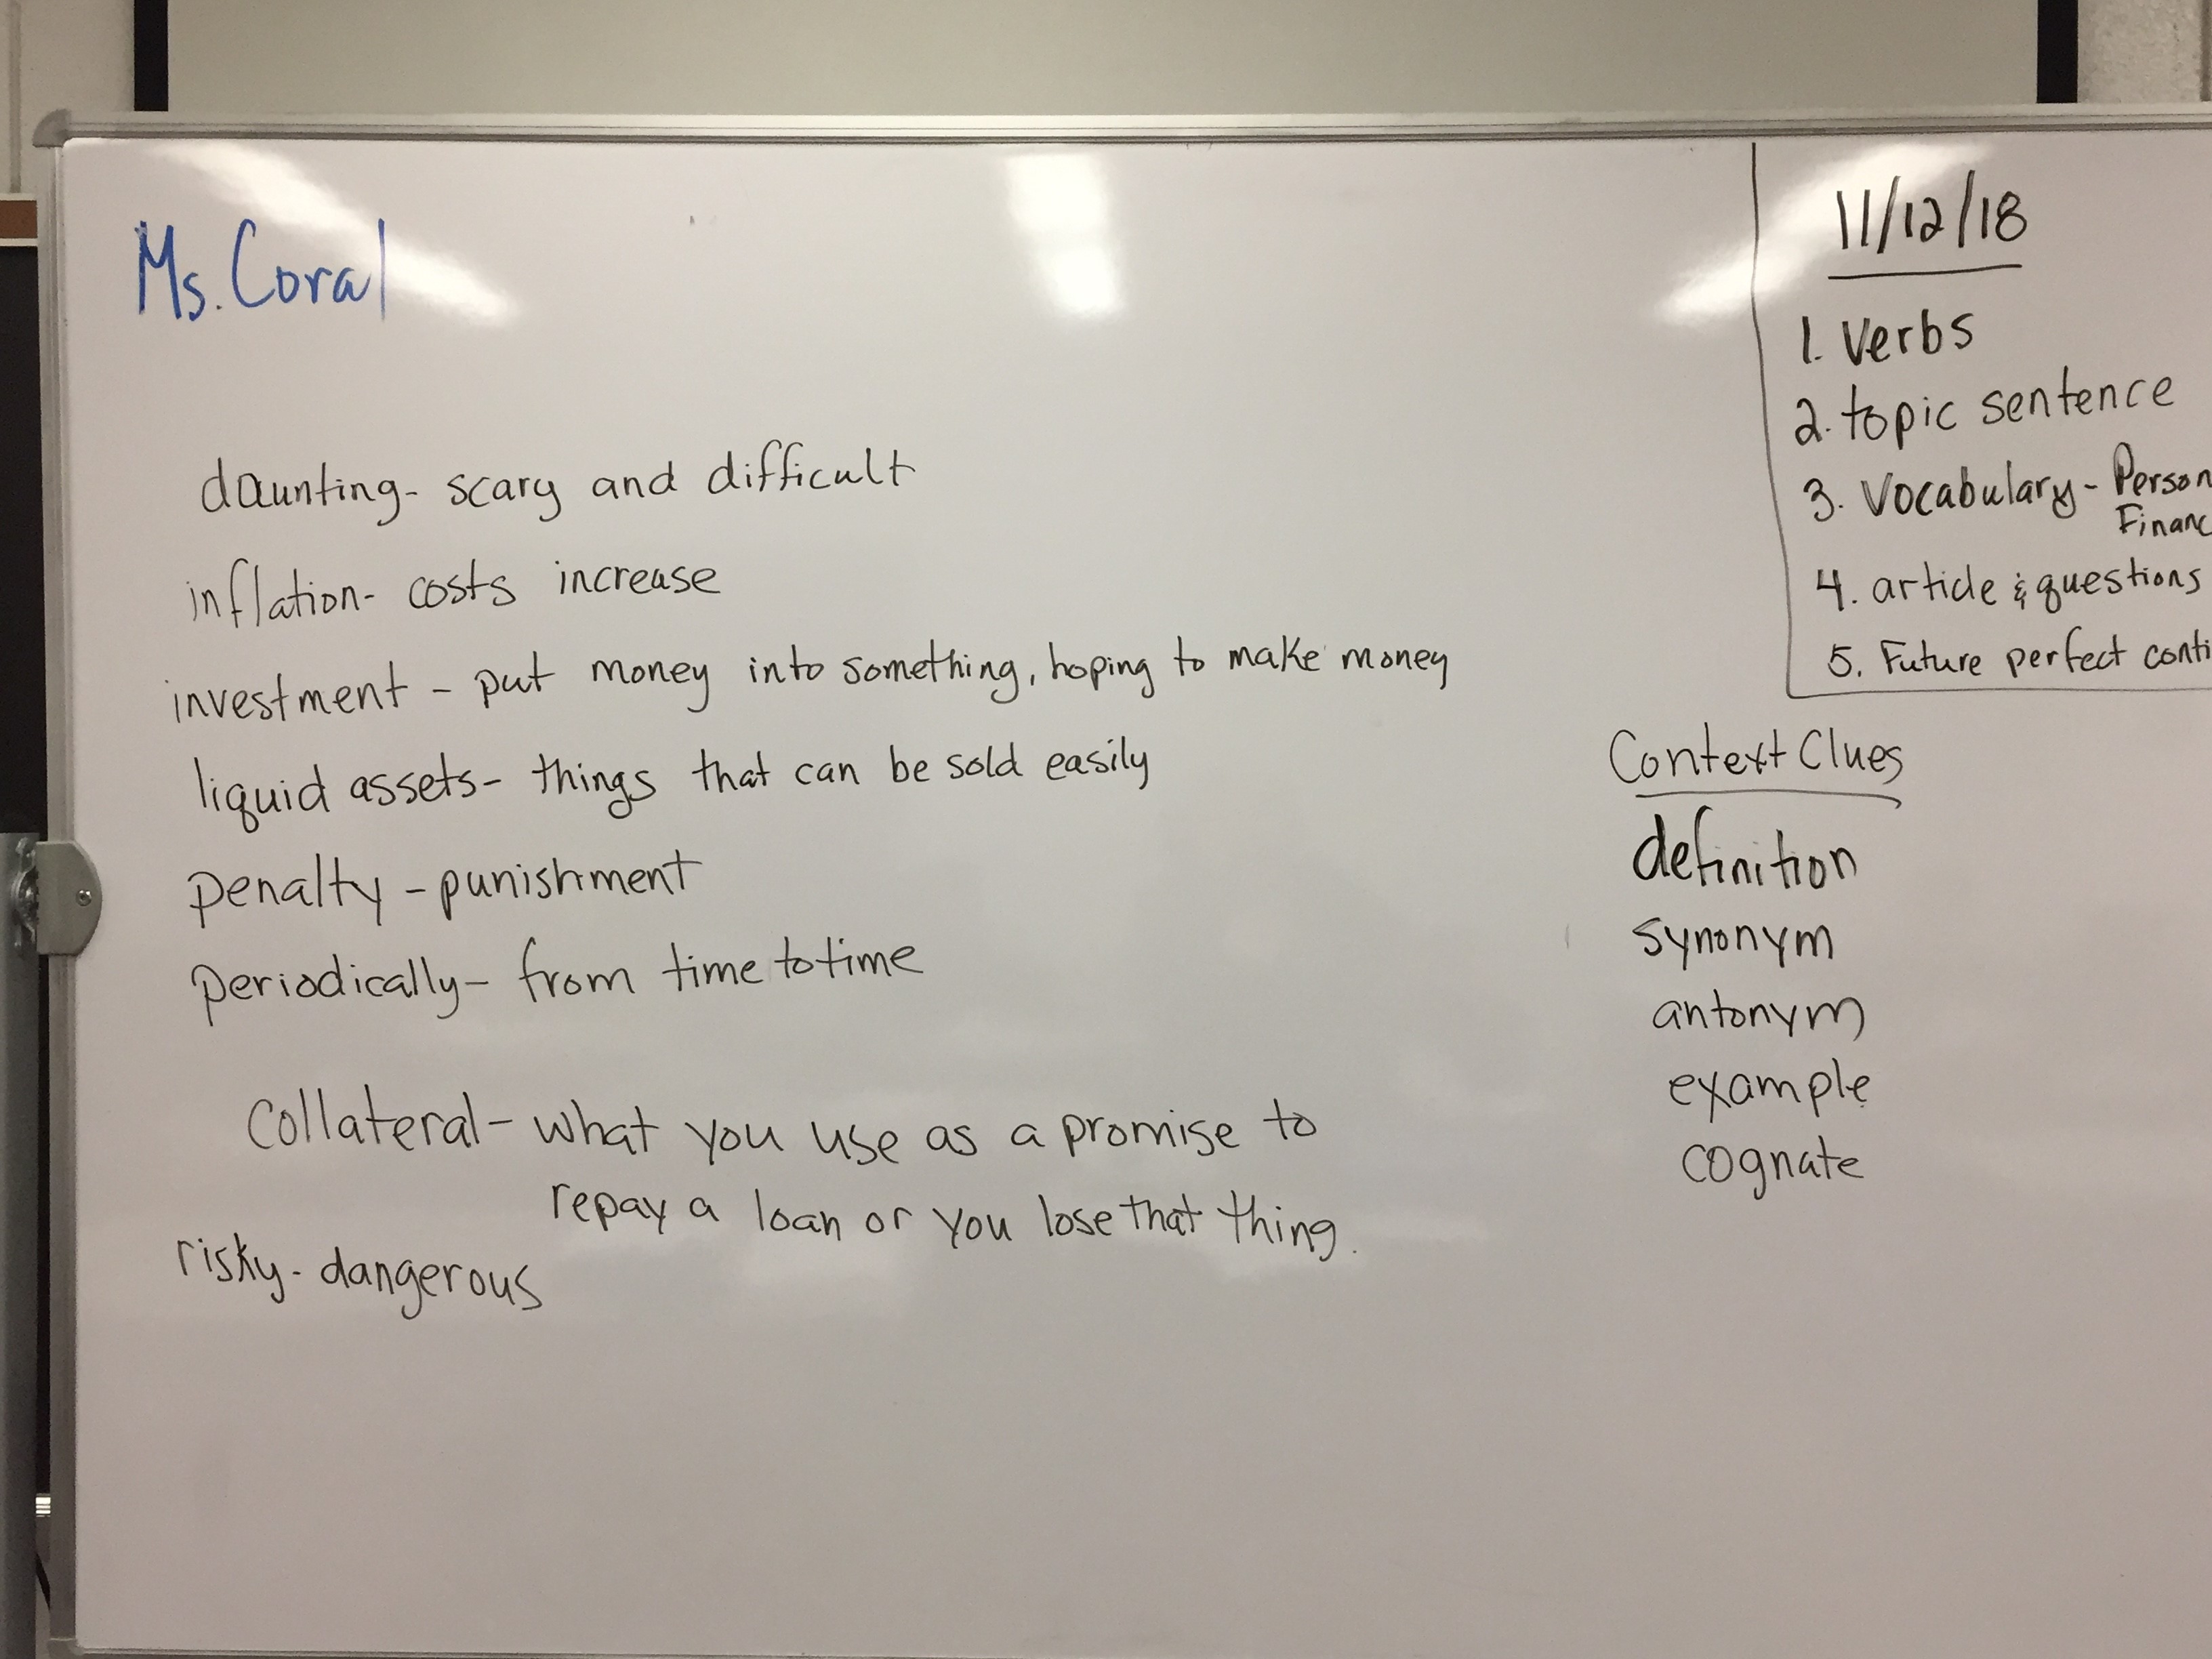 Ms. Coral
daunting- scary and difficult
inflation- costs increase
investment - put money into something, hoping to make money
liquid assets- things that can be sold easily
penalty - punishment
periodically- from time to time
Collateral- what you use as a promise to
repay a loan or you lose that thing.
risky- dangerous
11/12/18
1. Verbs
2. topic sentence
3. Vocabulary- Person
Financ
4. article & questions
5. Future perfect conti
Context Clues
definition
synonym
antonym
example
cognate